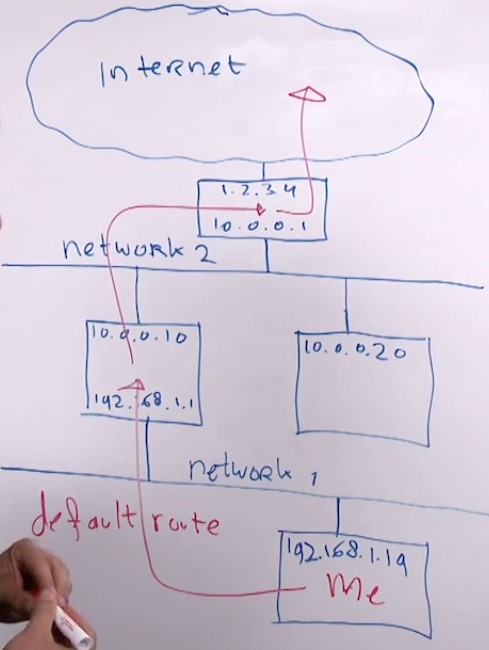 Internet
1.2.3.4
10.0.0.1
network 2
10.0.0.10
10.0.0.20
192.168.1.1
network 1
default route
192.168.1.19
Me